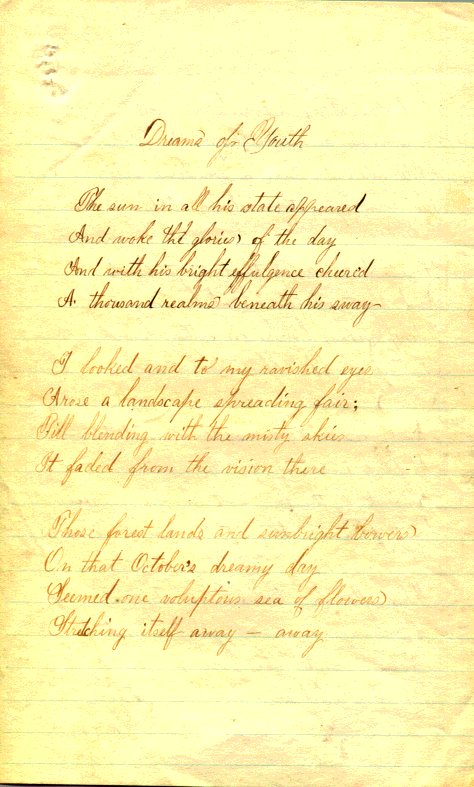 Dreams of Youth
The sun in all his state appeared
And woke the glories of the day
And with his bright effulgence cheered
A thousand realms beneath his sway
I looked and to my ravished eyes
Arose a landscape spreading fair;
Till blending with the misty skies
It faded from the vision there
Those forest lands and sunbright bowers
On that October's dreamy day
Seemed one voluptous sea of flowers
Stretching itself away – away